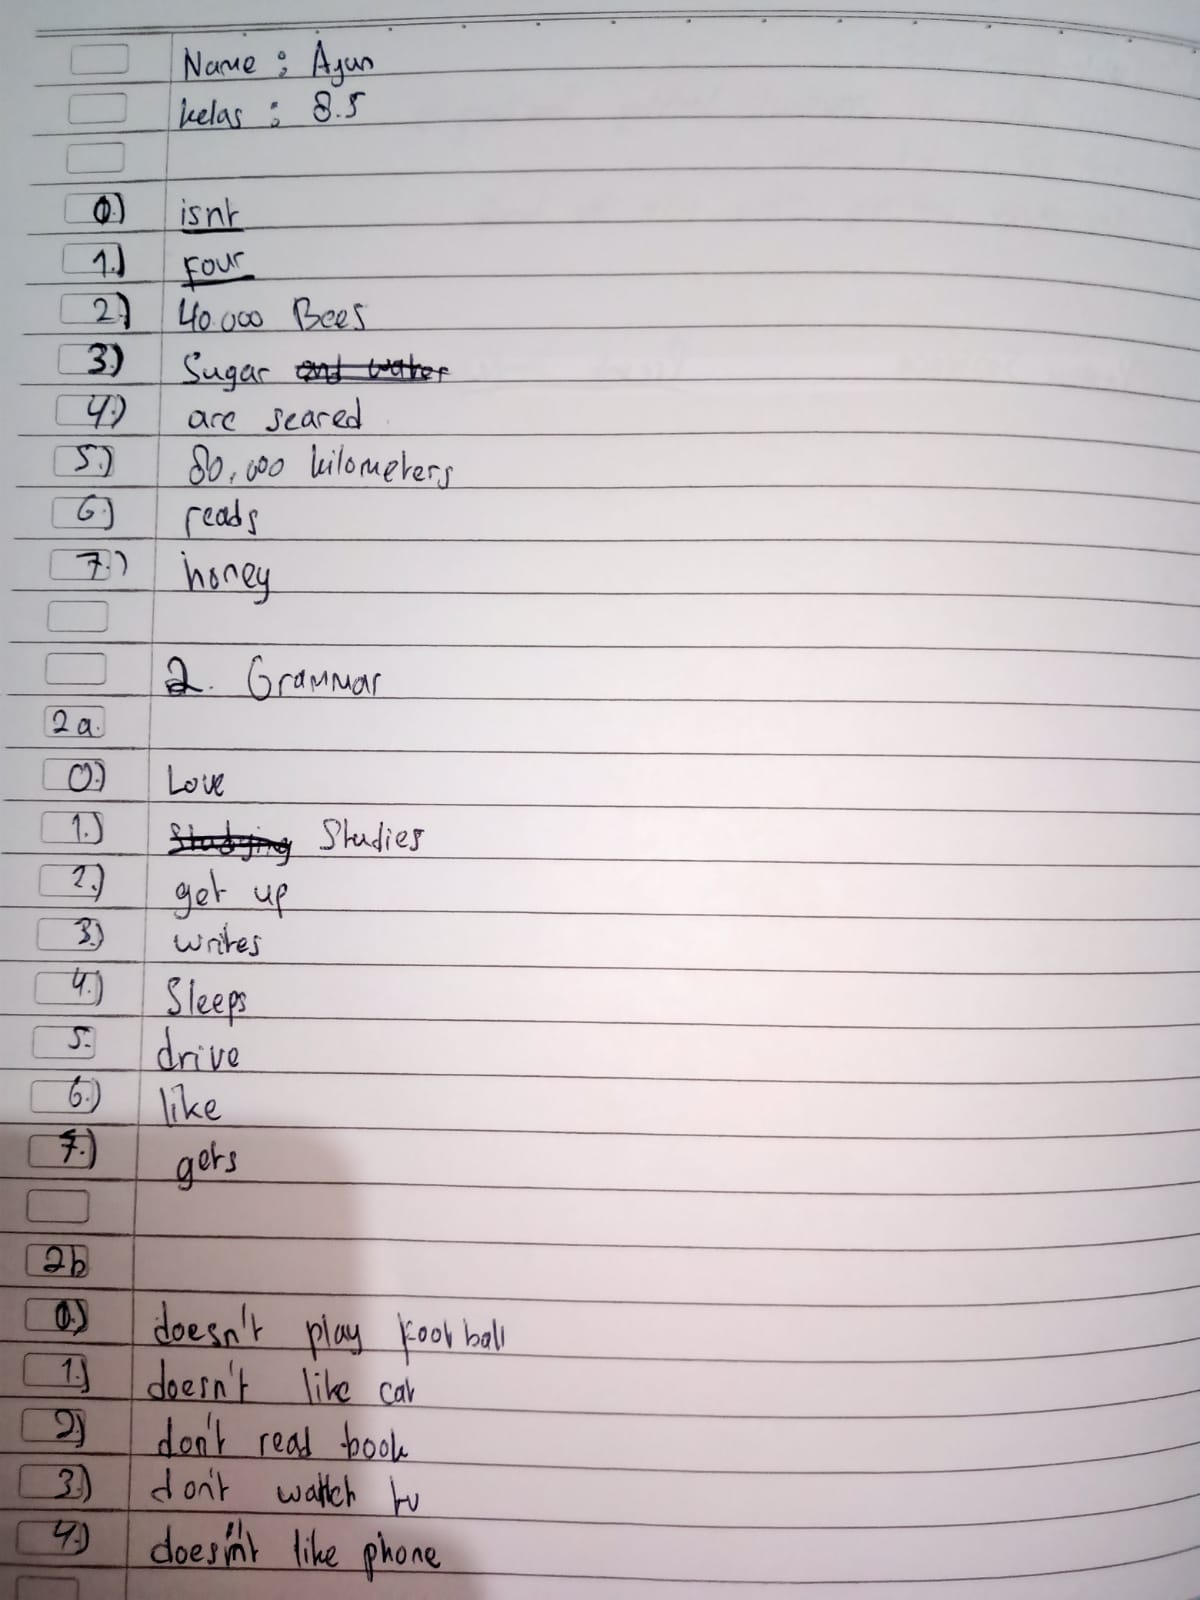 Name : Ayun
kelas : 8.5
0.) isnt
1.) Four
2.) 40.000 Bees
3.) Sugar and water
4.) are scared
5.) 80,000 kilometers
6.) reads
7.) honey
2. Grammar
2a.
0.) Love
1.) Studying Studies
2.) get up
3.) writes
4.) Sleeps
5. drive
6.) like
7.) gets
2b
0.) doesn't play football
1.) doesn't like cat
2.) don't read book
3.) don't watch tv
4.) doesn't like phone